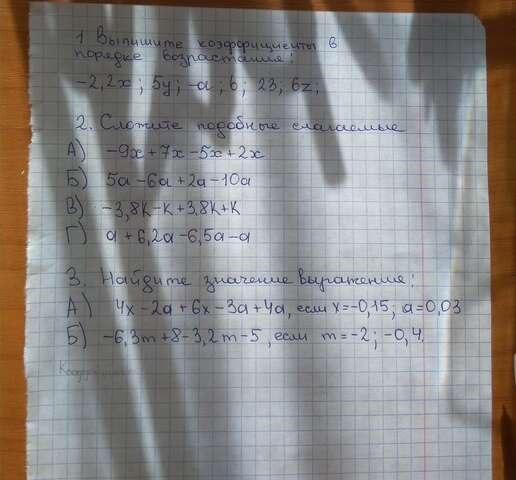 1 Выпишите коэффициенты в
порядке возрастания:
-2,2x; 5y; -a; б; 23; 6z;
2. Сложите подобные слагаемые
А) -9x+7x-5x+2x
Б) 5a-6a+2a-10a
В) -3,8к-к+3,8к+к
Г) a+6,2a-6,5a-a
3. Найдите значение выражения:
А) 4x-2a+6x-3a+4a, если x=-0,15; a=0,03
Б) -6,3m+8-3,2m-5, если m=-2; -0,4.